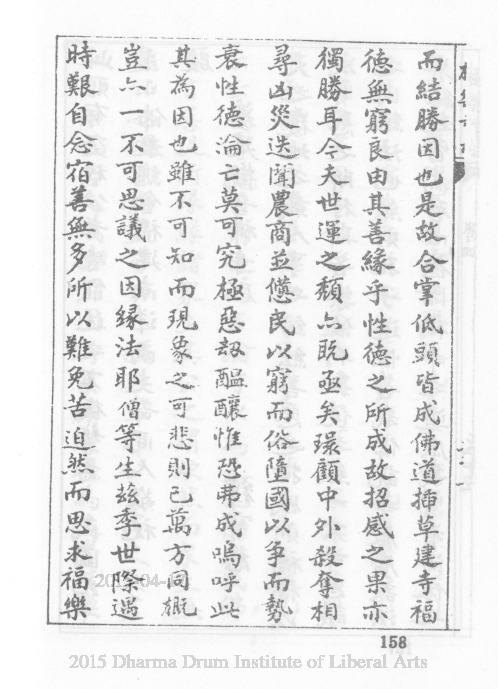 而結勝因也是故合掌低頭皆成佛道插草建寺福
德無窮良由其善緣乎性德之所成故招感之果亦
獨勝耳今夫世運之頹亦既亟矣環顧中外殺奪相
尋凶災迭聞農商並憊民以窮而俗隳國以爭而勢
衰性德淪亡莫可究極惡劫醞釀惟恐弗成嗚呼此
其為因也雖不可知而現象之可悲則已萬方同概
豈亦一不可思議之因緣法耶僧等生茲季世際遇
時艱自念宿善無多所以難免苦迫然而思求福樂
158
2015 Dharma Drum Institute of Liberal Arts